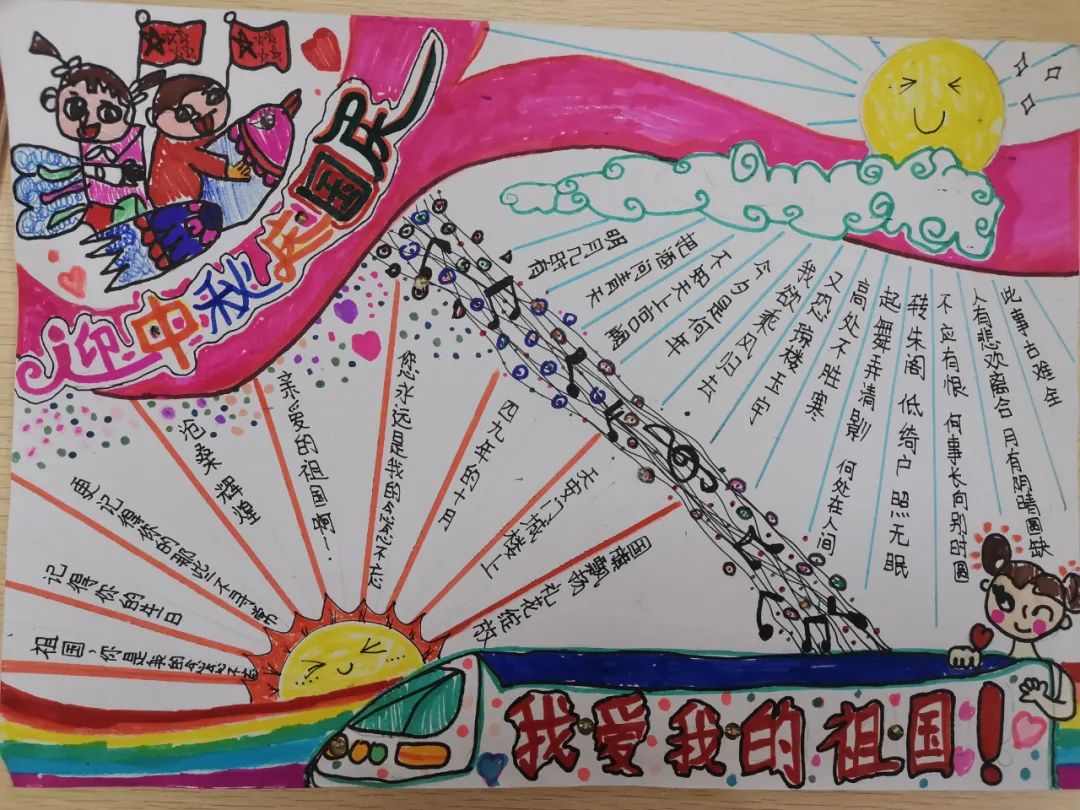 迎中秋庆国庆
明月几时有
把酒问青天
不知天上宫阙
今夕是何年
我欲乘风归去
又恐琼楼玉宇
高处不胜寒
起舞弄清影 何处在人间
转朱阁 低绮户 照无眠
不应有恨 何事长向别时圆
人有悲欢离合 月有阴晴圆缺
此事古难全
祖国，你是我的念念不忘
记得你的生日
更记得你的那些不寻常
沧桑辉煌
亲爱的祖国啊！
你永远是我的念念不忘
四九年的十月
天安门城楼上
国旗飘扬 礼花绽放
我爱我的祖国！